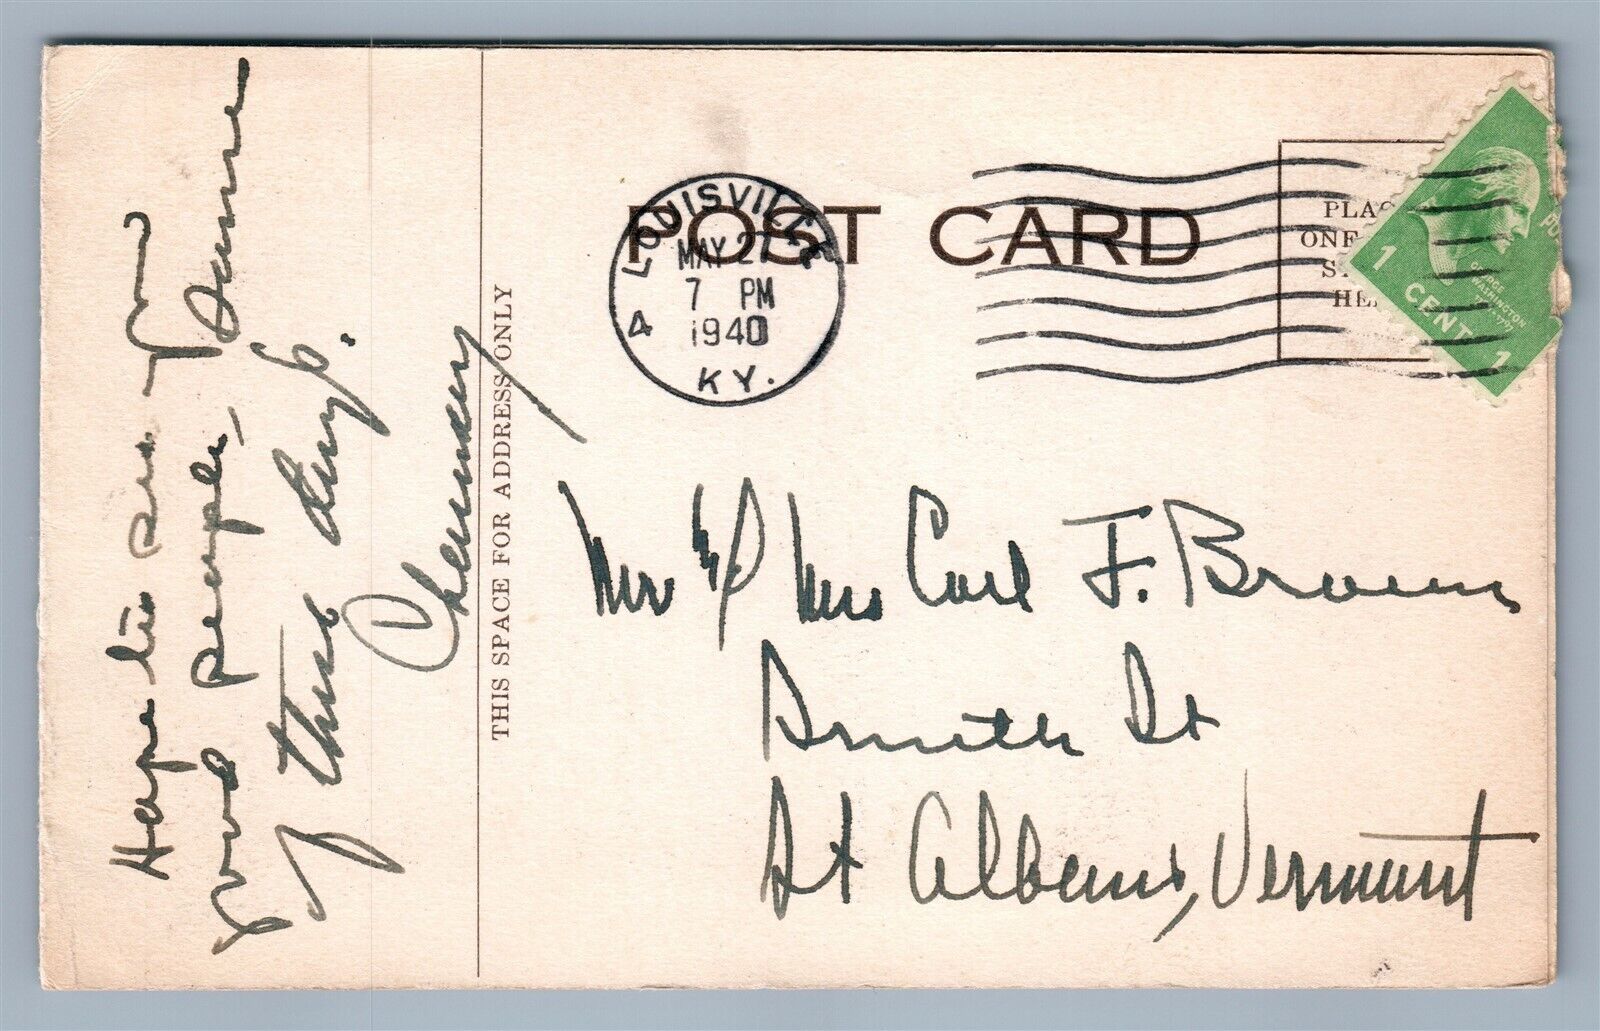 Hope to see you
good people, some
of these days.
Chennery
THIS SPACE FOR ADDRESS ONLY
POST CARD
LOUISVILLE
MAY 27
7 PM
1940
KY.
4
PLA
ONE
S
HE
1 CENT 1
GEORGE
WASHINGTON
Mr & Mrs Carl F. Brown
Smith St
St Albans, Vermont